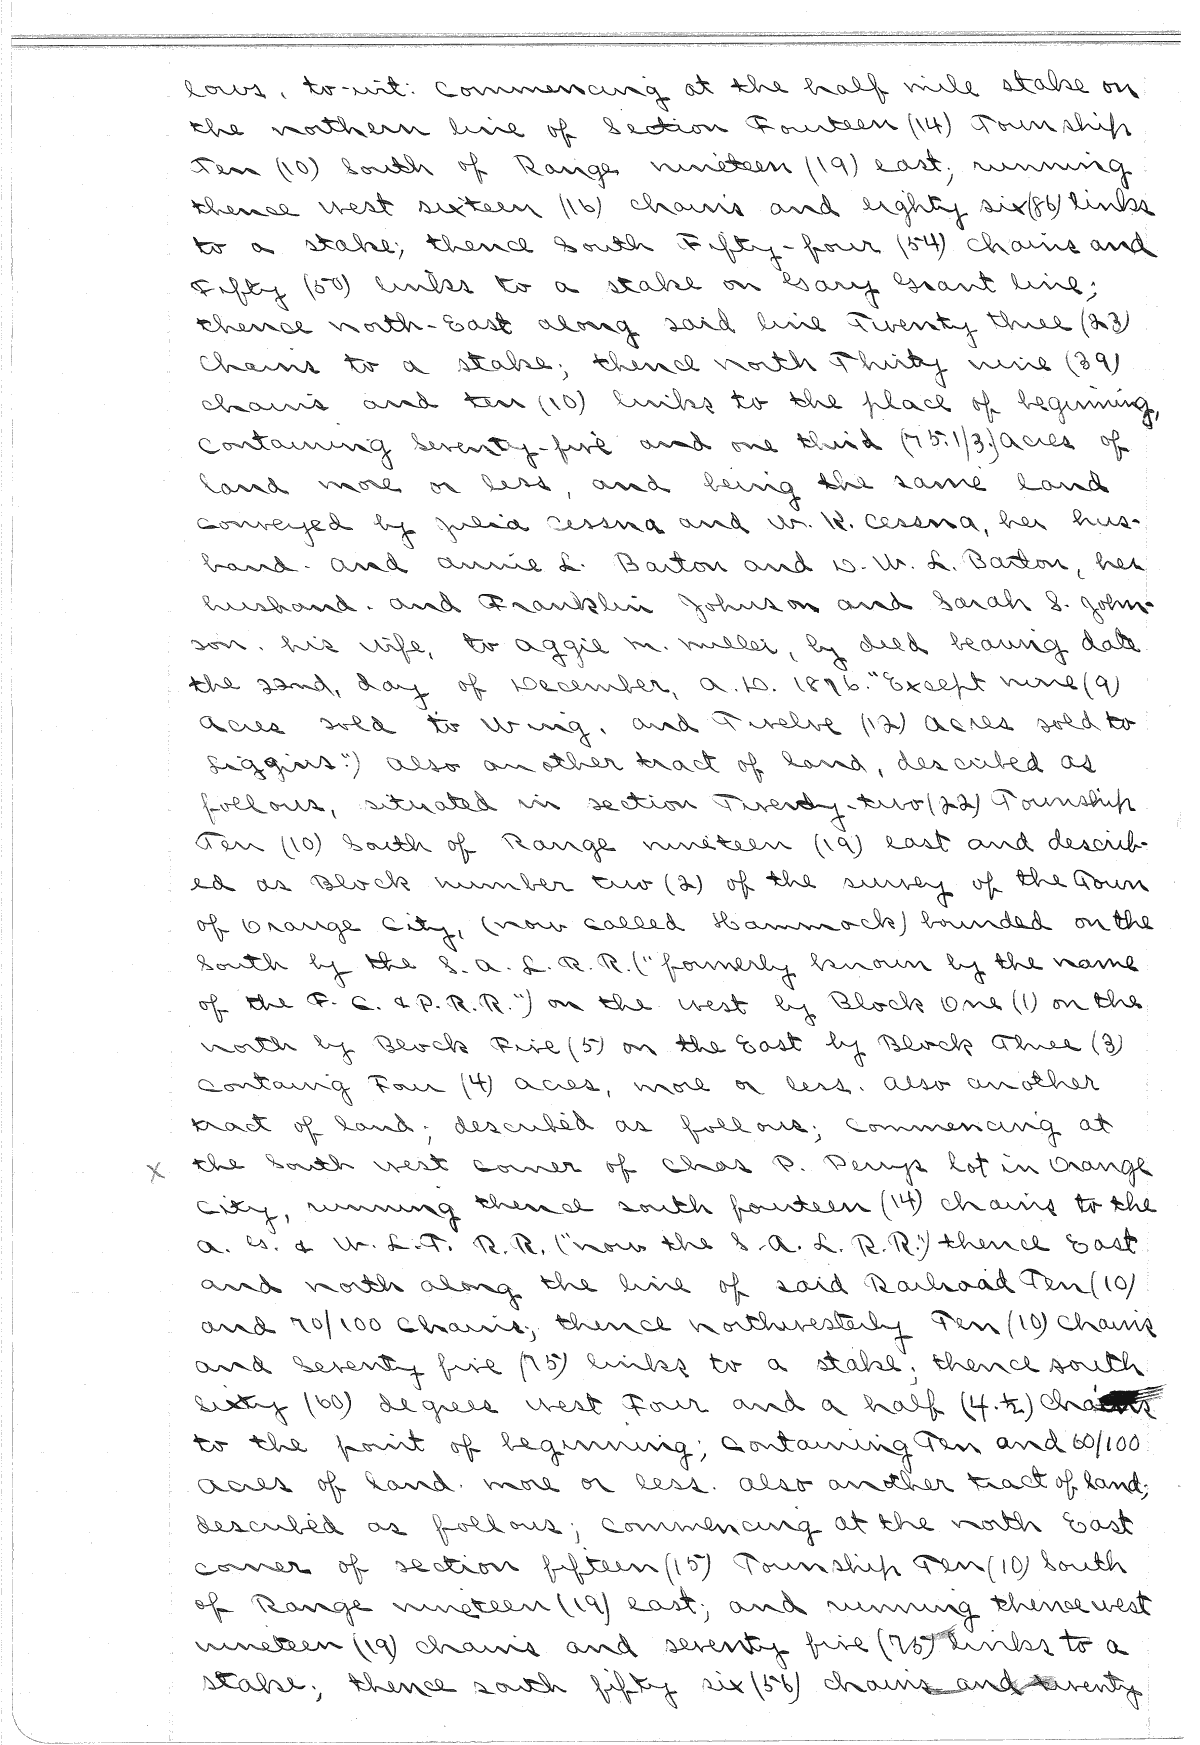 lows, to-wit: Commencing at the half mile stake on
the northern line of Section Fourteen (14) Township
Ten (10) South of Range nineteen (19) east; running
thence west sixteen (16) chains and eighty six (86) links
to a stake; thence South Fifty-four (54) chains and
Fifty (50) links to a stake on Gary Grant line;
thence north-East along said line Twenty three (23)
chains to a stake; thence north Thirty nine (39)
chains and ten (10) links to the place of beginning,
Containing Seventy-five and one third (75.1/3) acres of
land more or less, and being the same land
conveyed by Julia Cessna and W. K. Cessna, her hus-
band. and Annie L. Barton and D. W. L. Barton, her
husband. and Franklin Johnson and Sarah S. John-
son. his wife, to Aggie M. Miller, by deed bearing date
the 22nd, day of December, A. D. 1896. "Except nine (9)
acres sold to Wing, and Twelve (12) acres sold to
Liggins.") Also another tract of land, described as
follows, situated in section Twenty-two (22) Township
Ten (10) South of Range nineteen (19) east and describ-
ed as Block number two (2) of the survey of the Town
of Orange City, (now called Hammock) bounded on the
South by the S. A. L. R. R. ("formerly known by the name
of the F. C. & P. R. R.") on the west by Block One (1) on the
north by Block Five (5) on the East by Block Three (3)
containg Four (4) acres, more or less. Also another
tract of land; described as follows; commencing at
x the South west corner of Chas P. Perrys lot in Orange
City, running thence south fourteen (14) chains to the
A. G. & W. L. T. R. R. ("now the S. A. L. R. R.") thence East
and north along the line of said Railroad Ten (10)
and 70/100 chains; thence northwesterly Ten (10) chains
and Seventy five (75) links to a stake; thence south
Sixty (60) degrees west Four and a half (4.½) chains
to the point of beginning; containing Ten and 60/100
acres of land. more or less. also another tract of land;
described as follows; commencing at the north East
corner of section fifteen (15) Township Ten (10) South
of Range nineteen (19) east; and running thence west
nineteen (19) chains and seventy five (75) links to a
stake; thence south fifty six (56) chains and twenty